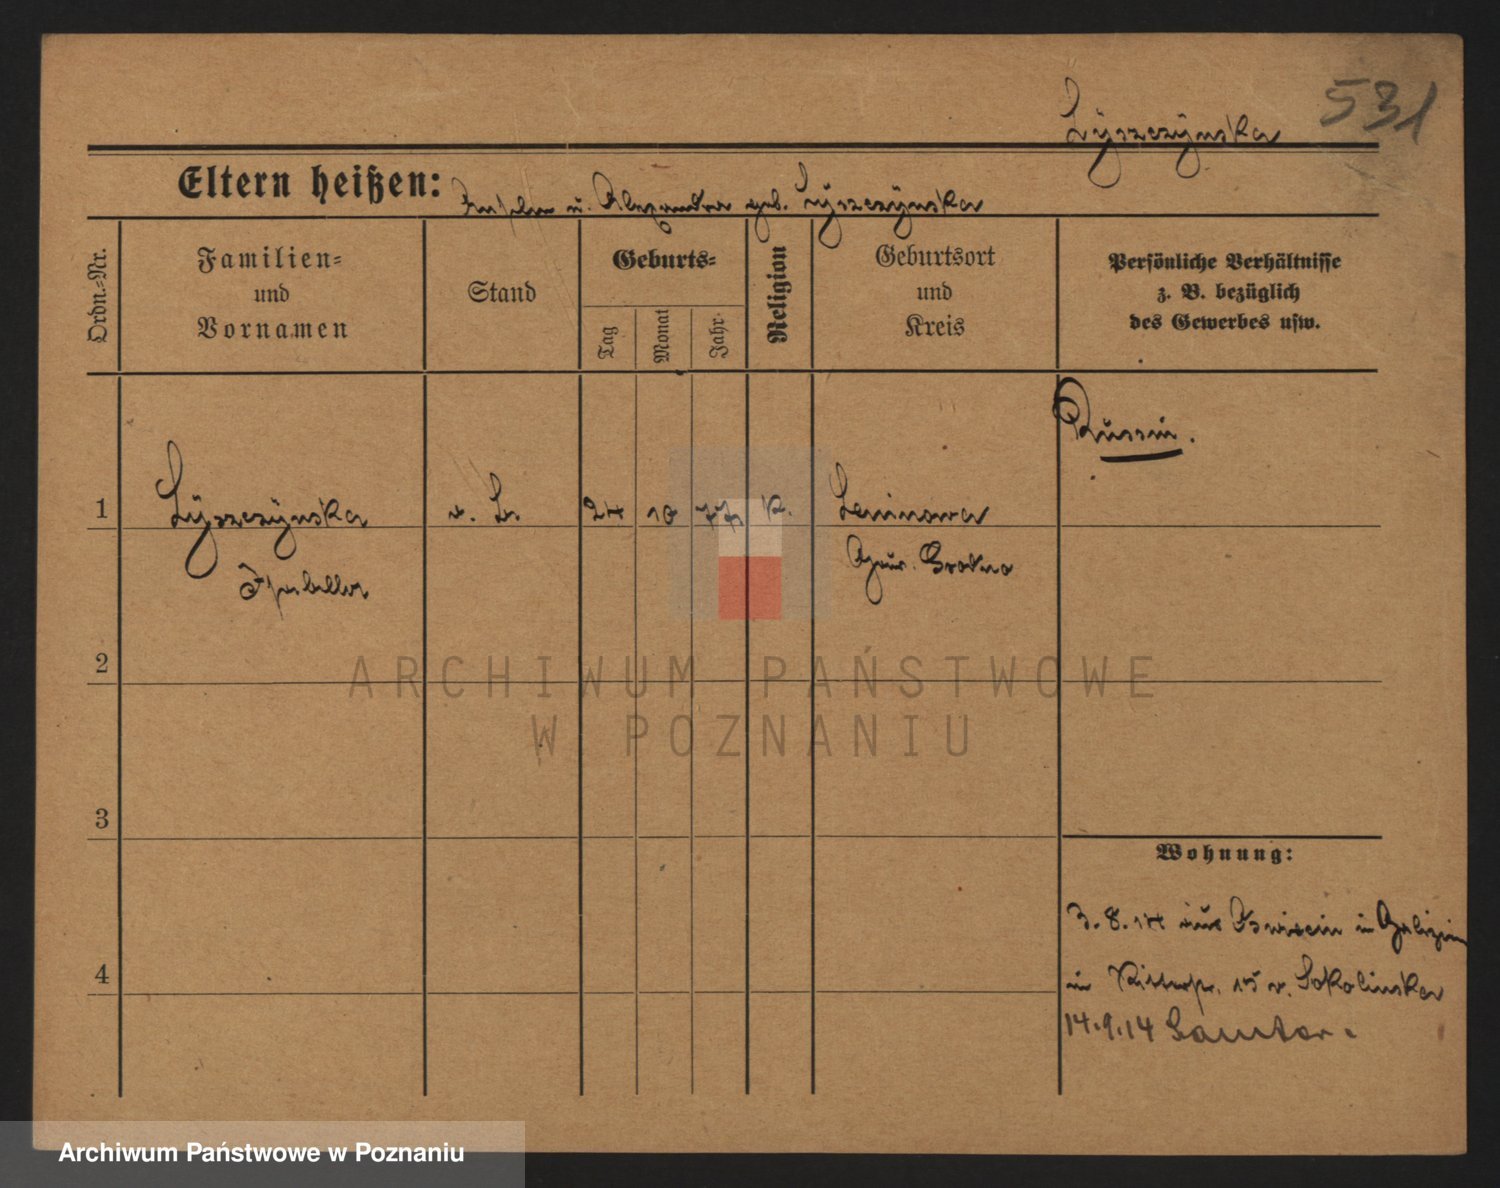 531
Lyszczynska
Eltern heißen: u. Alexandra geb. Lyszczynska
Ordn.-Nr.
Familien-
und
Vornamen
Stand
Geburts-
Tag
Monat
Jahr.
Religion
Geburtsort
und
Kreis
Persönliche Verhältnisse
z. B. bezüglich
des Gewerbes usw.
Russin.
1 Lyszczynska 24 10 77 K. Leninowa
Isabella Gouv. Grodno
2
3
4
Wohnung:
3.8.14 aus Oswiecin in Galizien
in Ritterstr. 15 v. Sokolinska
14.9.14 Samter.
ARCHIWUM PAŃSTWOWE
W POZNANIU
Archiwum Państwowe w Poznaniu